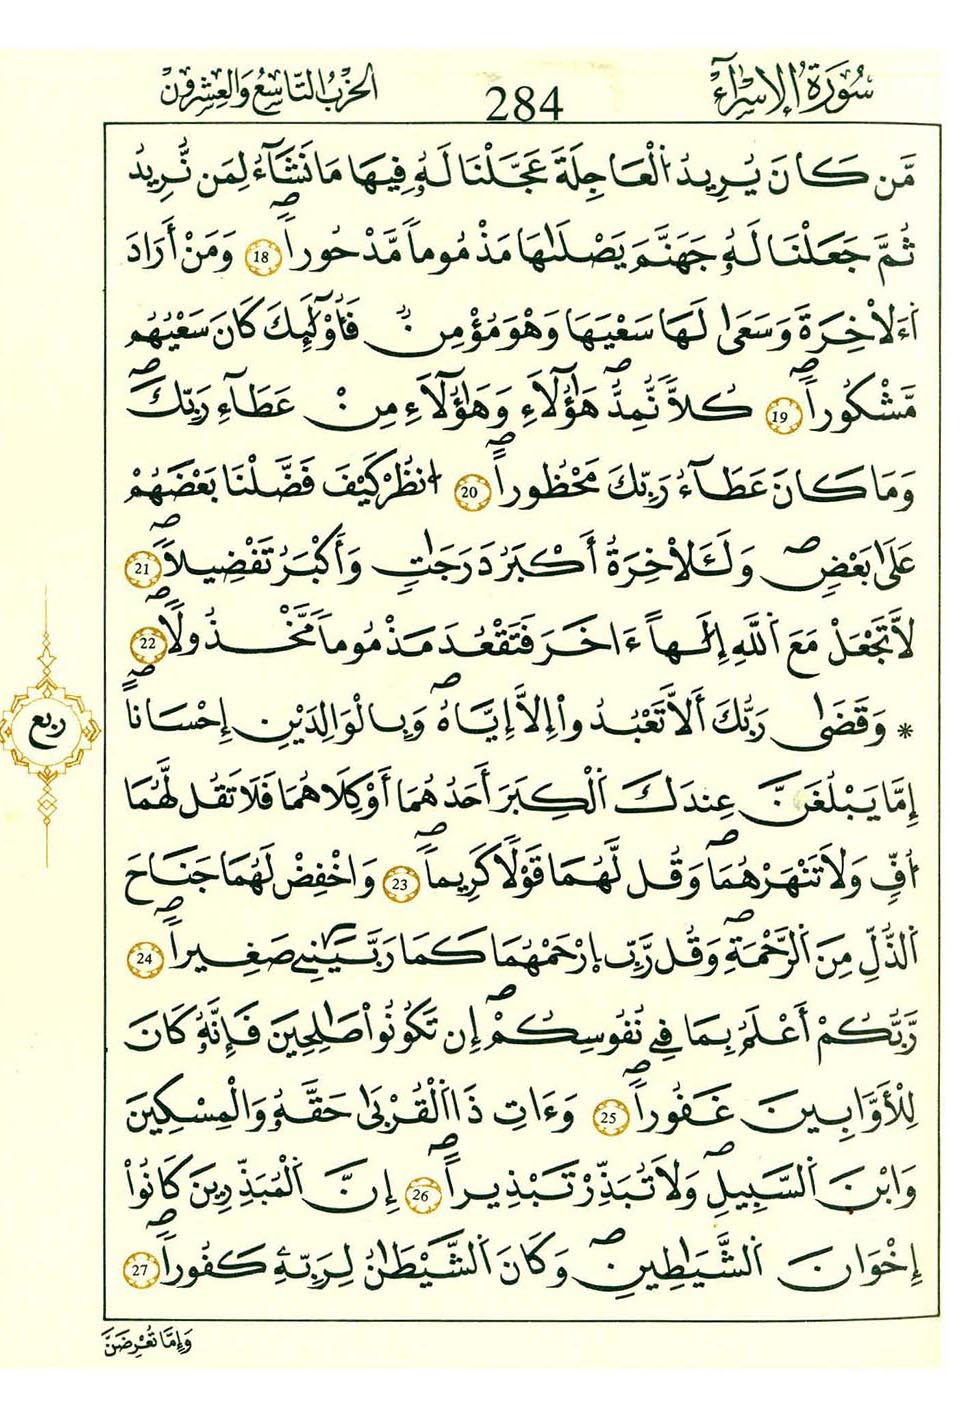 سُورَةُ الإِسْرَآءِ
284
الحِزْبُ التَّاسِعُ وَالْعِشْرُونَ
مَّن كَانَ يُرِيدُ الْعَاجِلَةَ عَجَّلْنَا لَهُۥ فِيهَا مَا نَشَآءُ لِمَن نُّرِيدُ
ثُمَّ جَعَلْنَا لَهُۥ جَهَنَّمَ يَصْلَىٰهَا مَذْمُوماً مَّدْحُوراً 18 وَمَنْ أَرَادَ
اَءَلَاخِرَةَ وَسَعَىٰ لَهَا سَعْيَهَا وَهُوَ مُؤْمِنٌ فَأُوْلَٰٓئِكَ كَانَ سَعْيُهُم
مَّشْكُوراً 19 كُلّاً نُّمِدُّ هَٰٓؤُلَآءِ وَهَٰٓؤُلَآءِ مِنْ عَطَآءِ رَبِّكَ
وَمَا كَانَ عَطَآءُ رَبِّكَ مَحْظُوراً 20 اُنظُرْ كَيْفَ فَضَّلْنَا بَعْضَهُمْ
عَلَىٰ بَعْضٍ وَلَلَاخِرَةُ أَكْبَرُ دَرَجَٰتٍ وَأَكْبَرُ تَفْضِيلاً 21
لَّا تَجْعَلْ مَعَ اَللَّهِ إِلَٰهاً ءَاخَرَ فَتَقْعُدَ مَذْمُوماً مَّخْذُولاً 22
* وَقَضَىٰ رَبُّكَ أَلَّا تَعْبُدُواْ إِلَّا إِيَّاهُ وَبِالْوَالِدَيْنِ إِحْسَاناً
إِمَّا يَبْلُغَنَّ عِندَكَ اَلْكِبَرَ أَحَدُهُمَا أَوْ كِلَاهُمَا فَلَا تَقُل لَّهُمَا
أُفٍّ وَلَا تَنْهَرْهُمَا وَقُل لَّهُمَا قَوْلاً كَرِيماً 23 وَاخْفِضْ لَهُمَا جَنَاحَ
اَلذُّلِّ مِنَ اَلرَّحْمَةِ وَقُل رَّبِّ اِرْحَمْهُمَا كَمَا رَبَّيَٰنِي صَغِيراً 24
رَّبُّكُمْ أَعْلَمُ بِمَا فِي نُفُوسِكُمْ إِن تَكُونُواْ صَٰلِحِينَ فَإِنَّهُۥ كَانَ
لِلْأَوَّابِينَ غَفُوراً 25 وَءَاتِ ذَا اَلْقُرْبَىٰ حَقَّهُۥ وَالْمِسْكِينَ
وَابْنَ اَلسَّبِيلِ وَلَا تُبَذِّرْ تَبْذِيراً 26 إِنَّ اَلْمُبَذِّرِينَ كَانُواْ
إِخْوَانَ اَلشَّيَٰطِينِ وَكَانَ اَلشَّيْطَٰنُ لِرَبِّهِۦ كَفُوراً 27
ربع
وَإِمَّا تُعْرِضَنَّ